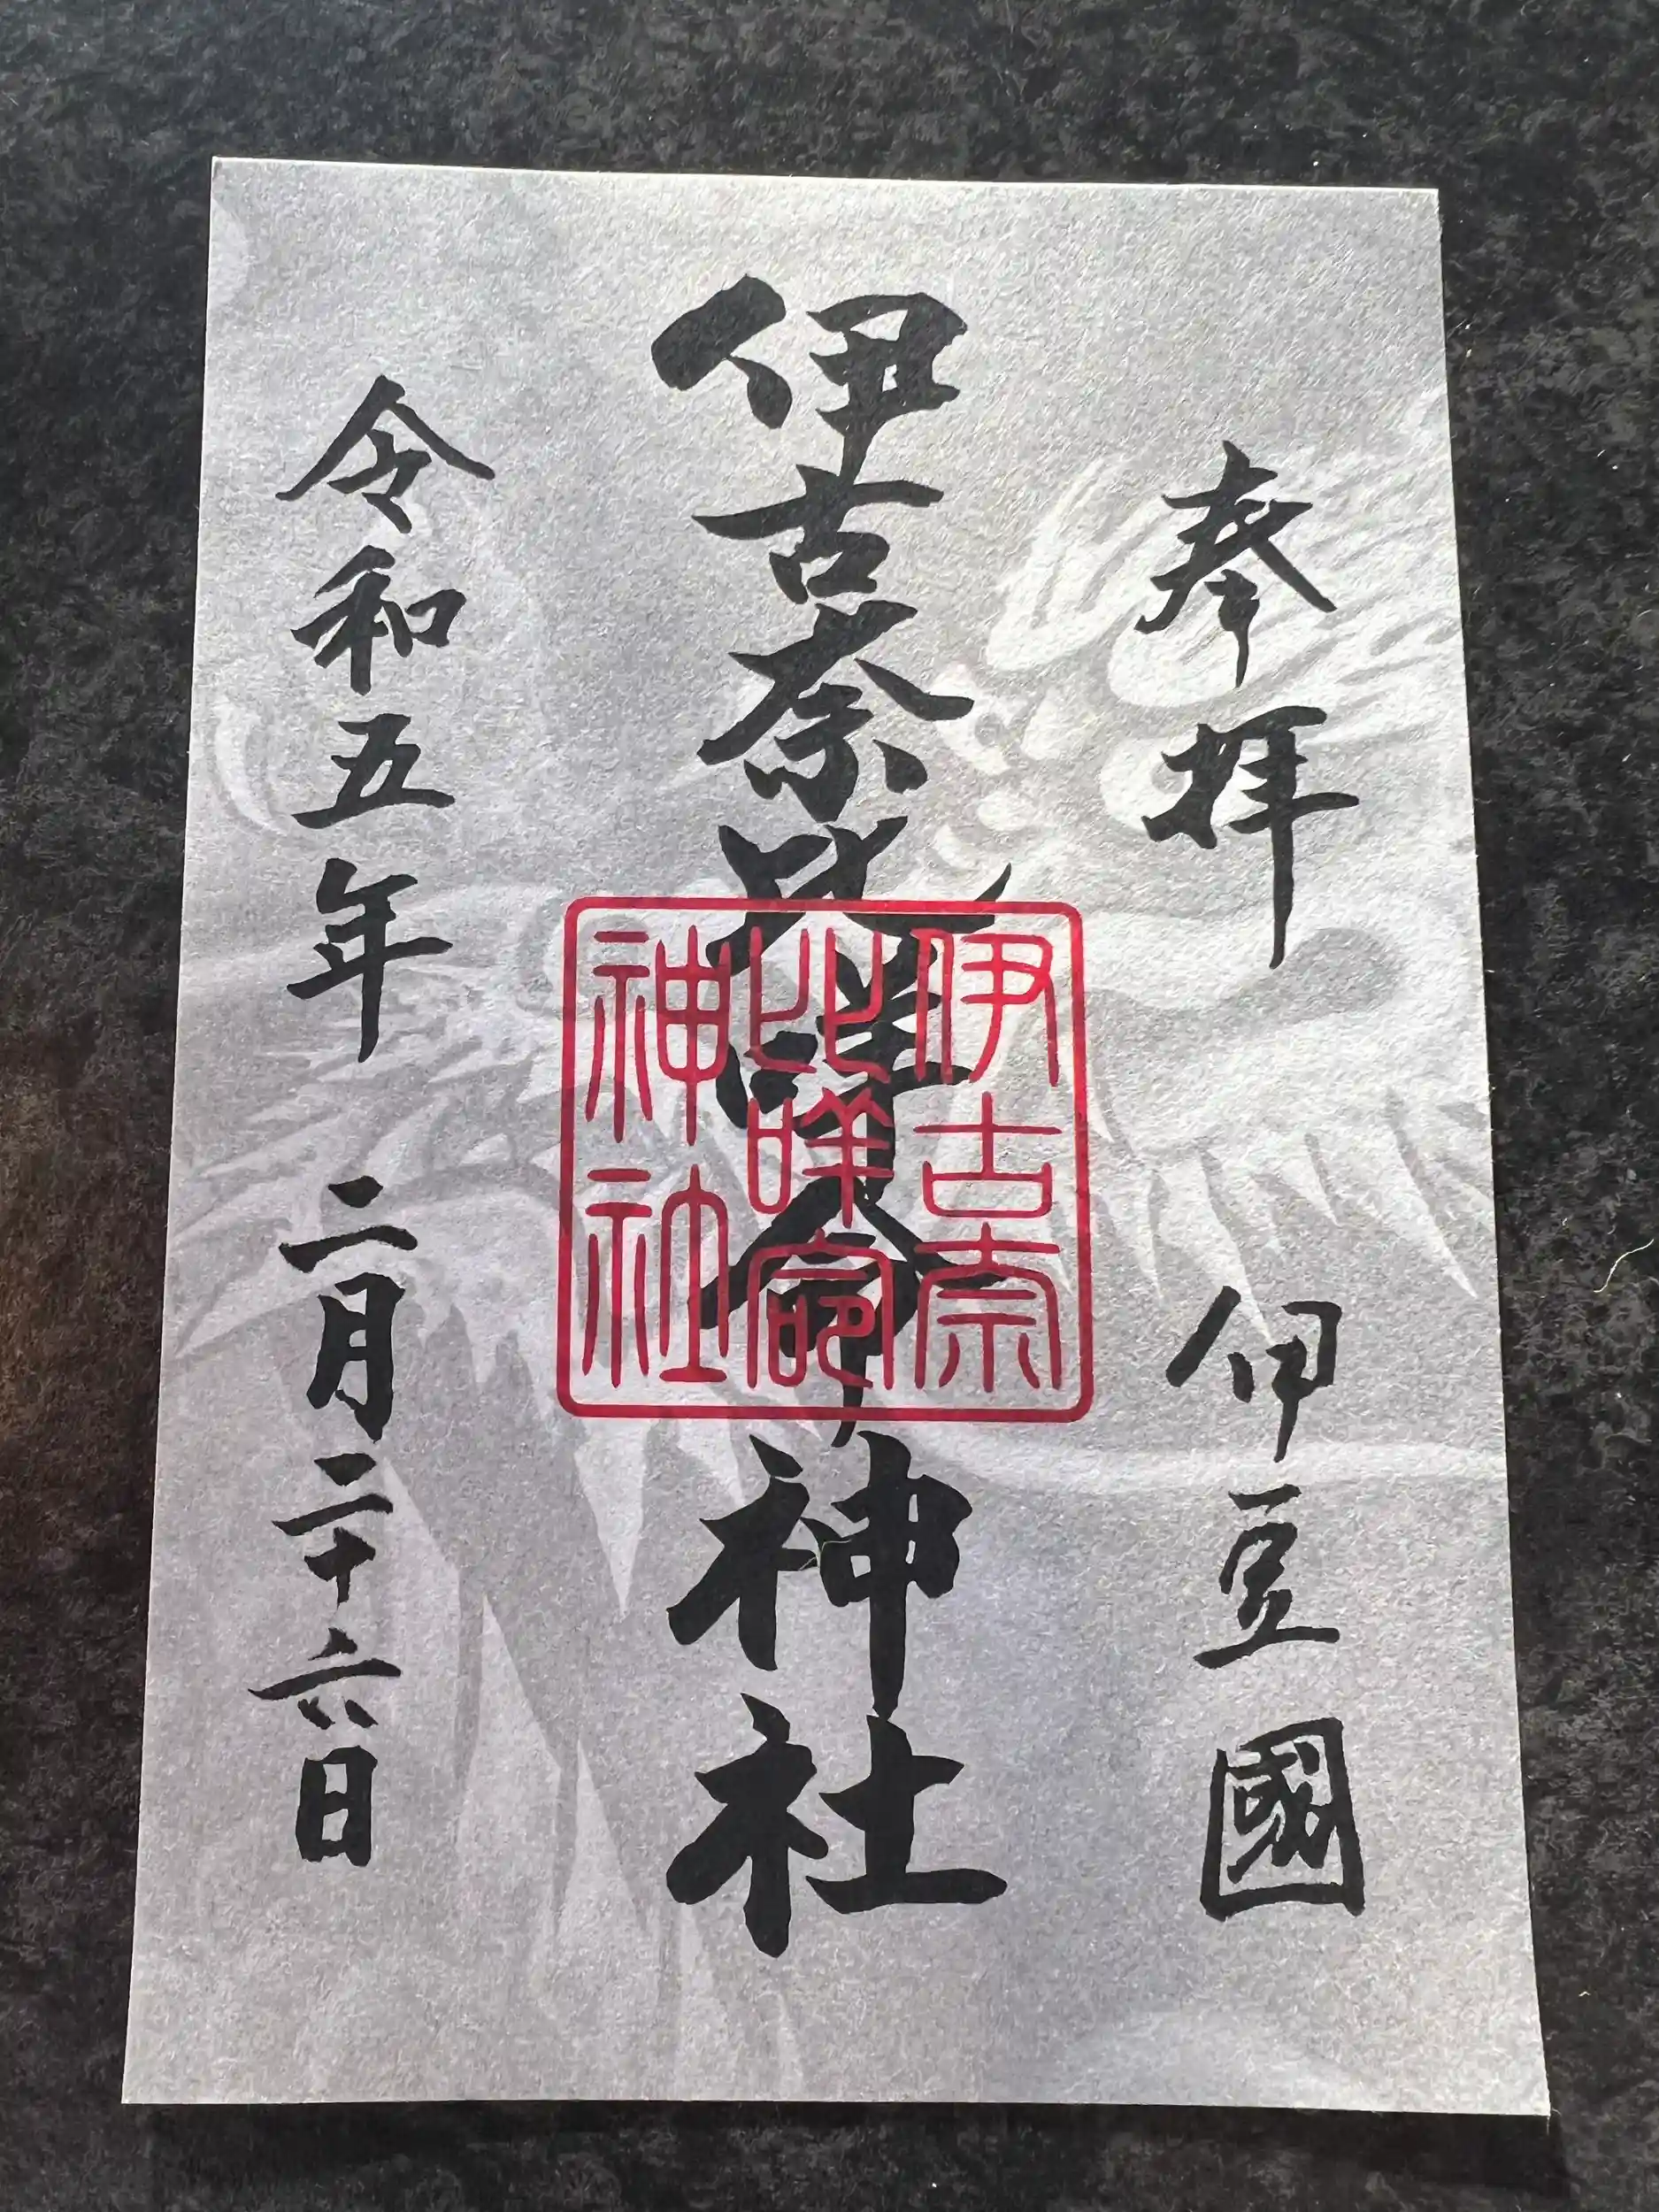 奉拝 伊豆國
伊古奈比咩命神社
伊古奈
比咩命
神社
令和五年 二月二十六日